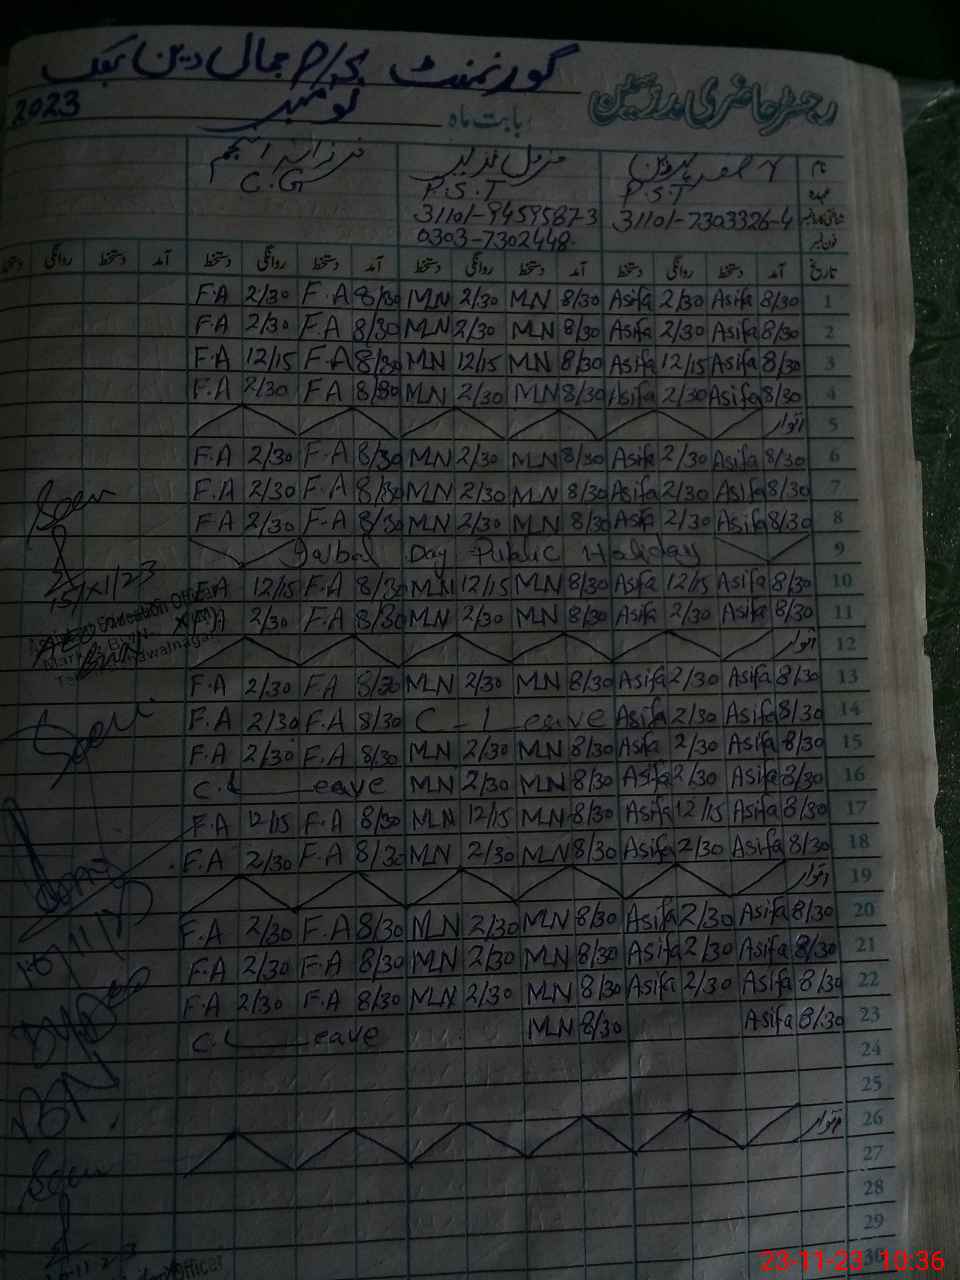 گورنمنٹ P/S جمال دین
رجسٹر حاضری مدرسین بابت ماہ نومبر 2023
نام آصفہ پروین مزمل نذیر فرزانہ انجم
عہدہ P.S.T P.S.T C.G
31101-7303326-4 31101-9459587-3
0303-7302448
تاریخ آمد دستخط روانگی دستخط آمد دستخط روانگی دستخط آمد دستخط روانگی دستخط آمد دستخط روانگی دستخط
F.A 2/30 F.A 8/30 MN 2/30 MN 8/30 Asifa 2/30 Asifa 8/30 1
F.A 2/30 F.A 8/30 MN 2/30 MN 8/30 Asifa 2/30 Asifa 8/30 2
F.A 12/15 F.A 8/30 MN 12/15 MN 8/30 Asifa 12/15 Asifa 8/30 3
F.A 2/30 F A 8/30 MN 2/30 MN 8/30 Asifa 2/30 Asifa 8/30 4
اتوار 5
F.A 2/30 F.A 8/30 MN 2/30 MN 8/30 Asifa 2/30 Asifa 8/30 6
F.A 2/30 F.A 8/30 MN 2/30 MN 8/30 Asifa 2/30 Asifa 8/30 7
F.A 2/30 F.A 8/30 MN 2/30 MN 8/30 Asifa 2/30 Asifa 8/30 8
Iqbal Day Public Holiday 9
F.A 12/15 F.A 8/30 MN 12/15 MN 8/30 Asifa 12/15 Asifa 8/30 10
F.A 2/30 F.A 8/30 MN 2/30 MN 8/30 Asifa 2/30 Asifa 8/30 11
اتوار 12
F.A 2/30 F.A 8/30 MN 2/30 MN 8/30 Asifa 2/30 Asifa 8/30 13
F.A 2/30 F.A 8/30 C-Leave Asifa 2/30 Asifa 8/30 14
F.A 2/30 F.A 8/30 MN 2/30 MN 8/30 Asifa 2/30 Asifa 8/30 15
C.Leave MN 2/30 MN 8/30 Asifa 2/30 Asifa 8/30 16
F.A 12/15 F.A 8/30 MN 12/15 MN 8/30 Asifa 12/15 Asifa 8/30 17
F.A 2/30 F.A 8/30 MN 2/30 MN 8/30 Asifa 2/30 Asifa 8/30 18
اتوار 19
F.A 2/30 F.A 8/30 MN 2/30 MN 8/30 Asifa 2/30 Asifa 8/30 20
F.A 2/30 F.A 8/30 MN 2/30 MN 8/30 Asifa 2/30 Asifa 8/30 21
F.A 2/30 F.A 8/30 MN 2/30 MN 8/30 Asifa 2/30 Asifa 8/30 22
C.Leave MN 8/30 Asifa 8/30 23
24
25
اتوار 26
27
28
29
30
Seen
Education Officer
Seen
Seen
Officer
23-11-23 10:36